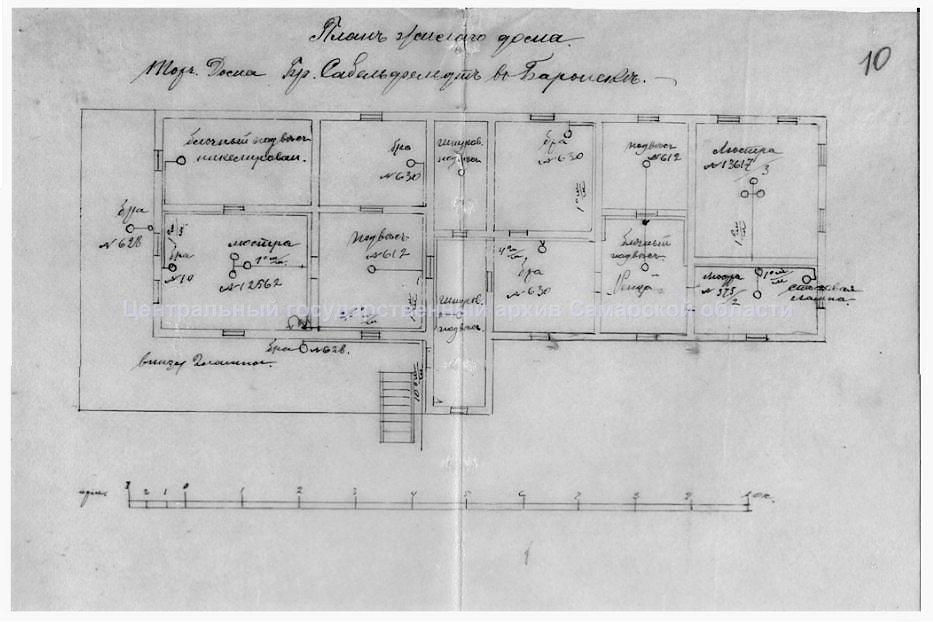 Планъ жилаго дома.
Торг. Дома Бр. Сабельфельдъ въ Баронскъ.
10
блочный подвѣсъ
никелирован.
бра
№630
шнуров.
подвѣсъ
бра
№630
подвѣсъ
№612
Люстра
№13617/3
бра
№628
бра
№10
люстра
№12562
Подвѣсъ
№612
шнуров.
подвѣс.
бра
№630
блочный
подвѣсъ.
люстра
№575/2
лампа
Центральный государственный архив Самарской области
бра №628.
внизу
2 1 0 1 2 3 4 5 6 7 8 9